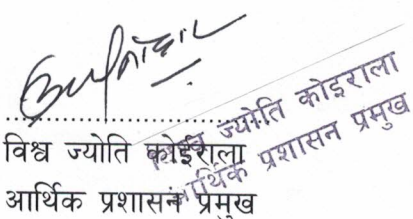 विश्व ज्योति कोईराला
आर्थिक प्रशासन प्रमुख
विश्व ज्योति कोइराला
आर्थिक प्रशासन प्रमुख